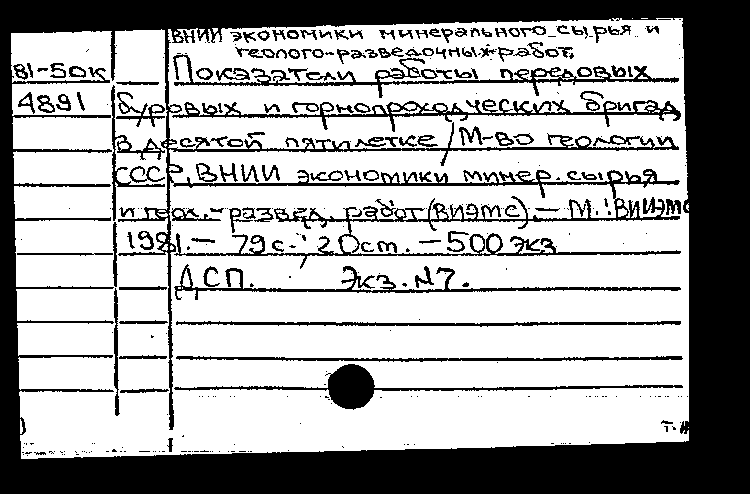 ВНИИ экономики минерального сырья и
геолого-разведочных работ.
81-50к Показатели работы передовых
4891 буровых и горнопроходческих бригад
в десятой пятилетке / М-во геологии
СССР, ВНИИ экономики минер. сырья
и геол.-развед. работ (ВИЭМС). — М.: ВИЭМС
1981. — 79 с.; 20 см. — 500 экз
ДСП. Экз. №7.